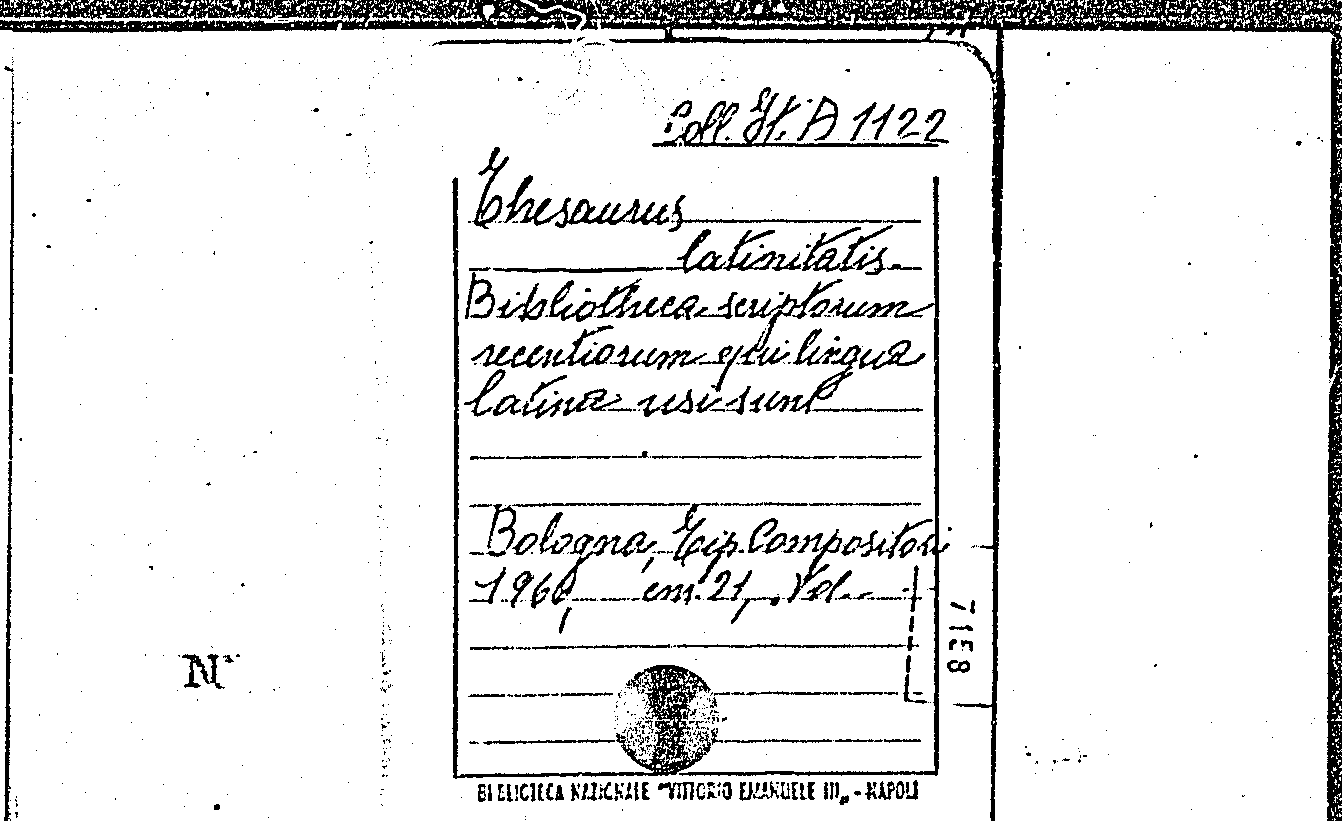 Coll. It. A 1122
Thesaurus
latinitatis.
Bibliotheca scriptorum
recentiorum qui lingua
latina usi sunt
Bologna, Tip. Compositori
1966, cm 21, Vol.
7158
N°
BIBLIOTECA NAZIONALE "VITTORIO EMANUELE III„ - NAPOLI